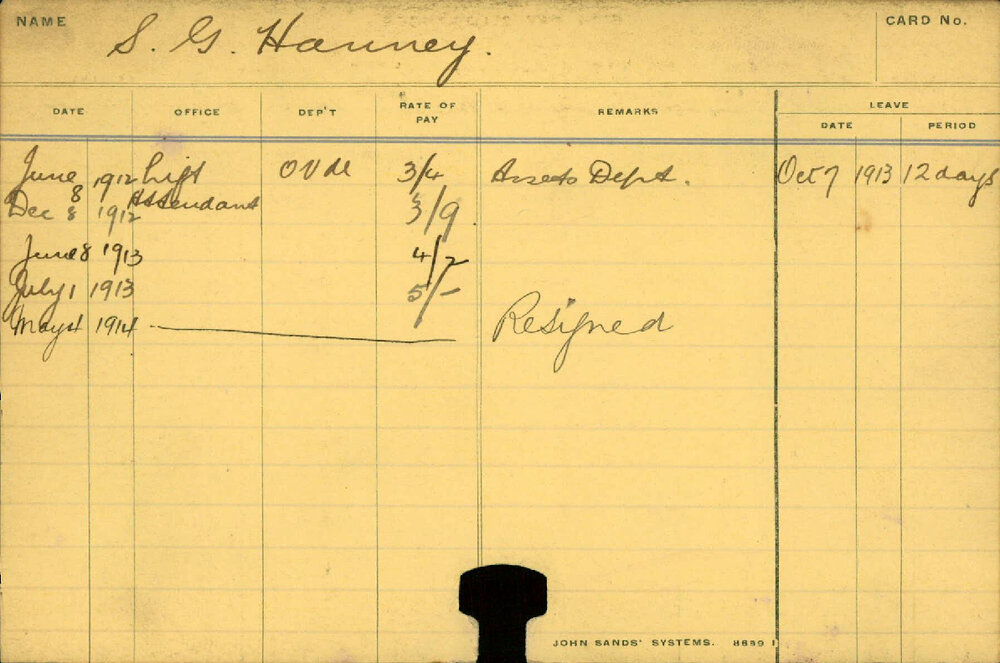 NAME S. G. Hanney. CARD No.
DATE OFFICE DEP'T RATE OF PAY REMARKS LEAVE
DATE PERIOD
June 8 1912 Lift Attendant OVDL 3/4 Assets Dept. Oct 7 1913 12 days
Dec 8 1912 3/9
June 8 1913 4/2
July 1 1913 5/-
May 4 1914 Resigned
JOHN SANDS' SYSTEMS. 8689